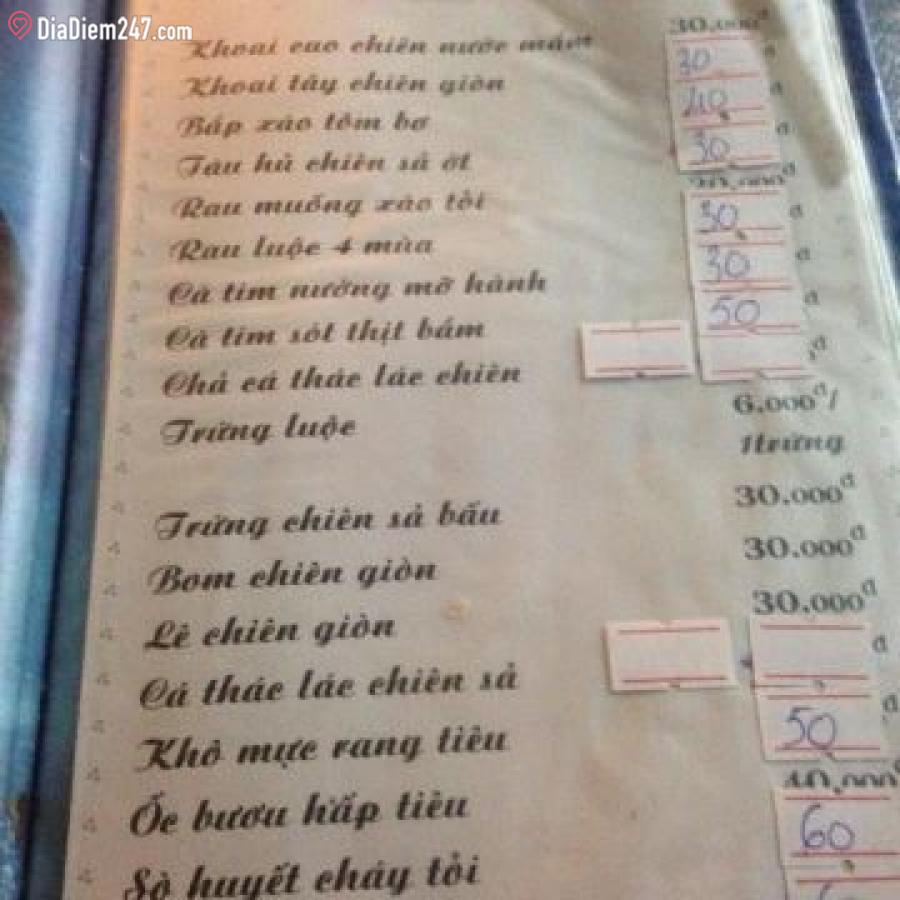 DiaDiem247.com
Khoai cao chiên nước mắm 30.000đ
Khoai tây chiên giòn 30 đ
Bắp xào tôm bơ 40 đ
Tàu hủ chiên sả ớt 30 đ
Rau muống xào tỏi
Rau luộc 4 mùa 30 đ
Cà tím nướng mỡ hành 30 đ
Cà tím sót thịt bầm 50 đ
Chả cá thác lác chiên đ
Trứng luộc 6.000đ/
1trứng
Trứng chiên sả bấu 30.000đ
Bom chiên giòn 30.000đ
Lê chiên giòn 30.000đ
Cá thác lác chiên sả đ
Khô mực rang tiêu 50 đ
Ốc bươu hấp tiêu 40.000đ
Sò huyết cháy tỏi 60